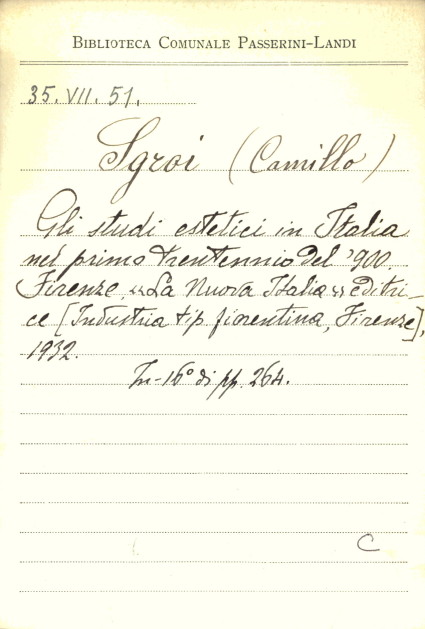 BIBLIOTECA COMUNALE PASSERINI-LANDI
35. VII. 51.
Sgroi (Camillo)
Gli studi estetici in Italia
nel primo trentennio del '900.
Firenze, «La Nuova Italia» editri-
ce [Industria tip. fiorentina, Firenze],
1932.
In-16° di pp. 264.
C